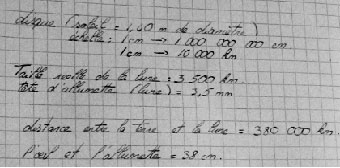 disque (soleil = 1,40 m de diamètre)
échelle : 1 cm → 1 000 000 000 cm
1 cm → 10 000 km
Taille réelle de la lune : 3 500 km
Tête d'allumette (lune) = 3,5 mm
distance entre la terre et la lune = 380 000 km.
l'oeil et l'allumette = 38 cm.